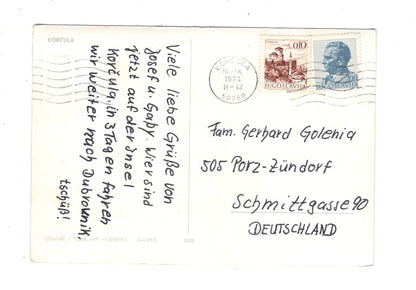 KORČULA
Viele liebe Grüße von
Josef u. Gaby. Wir sind
jetzt auf der Insel
Korčula, in 3 Tagen fahren
wir weiter nach Dubrovnik
tschüß!
KORČULA
1974
11-12
50260
0,10
JUGOSLAVIJA
JUGOSLAVIJA
Fam. Gerhard Golenia
505 Porz-Zündorf
Schmittgasse 90
DEUTSCHLAND